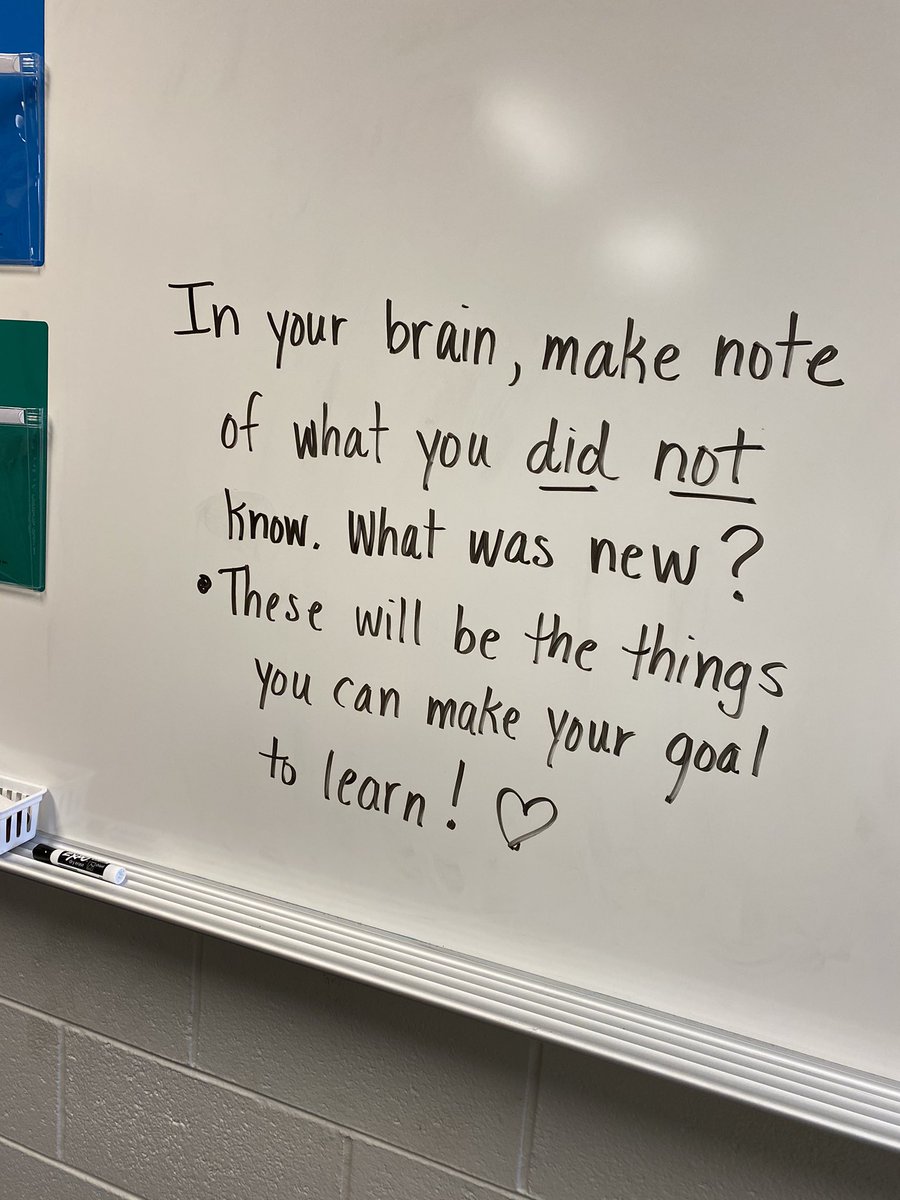 In your brain, make note
of what you did not
know. What was new?
• These will be the things
you can make your goal
to learn! ♡
EXPO